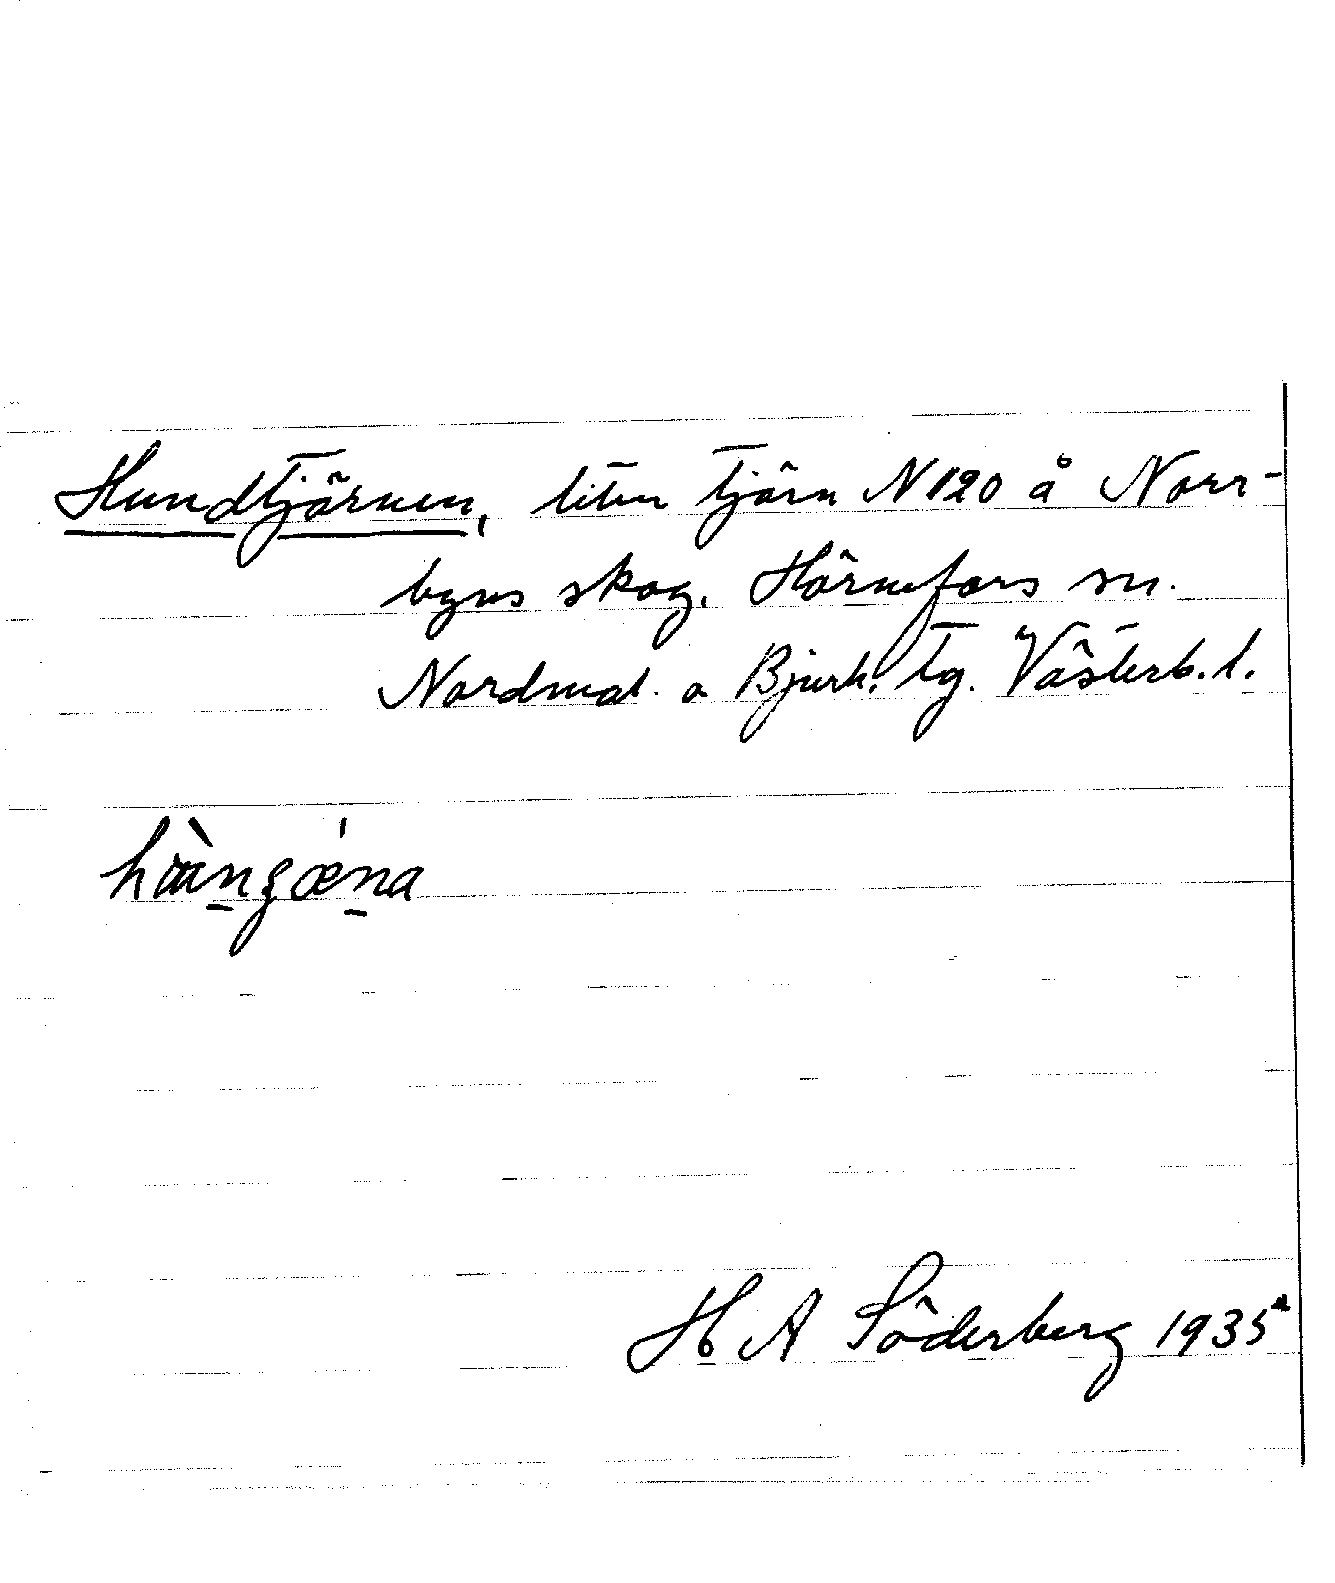 Hundtjärnen, liten tjärn N 120 å Norr-
byns skog. Hörnefors sn.
Nordmal. o Bjurh. tg. Västerb. l.
H A Söderberg 1935